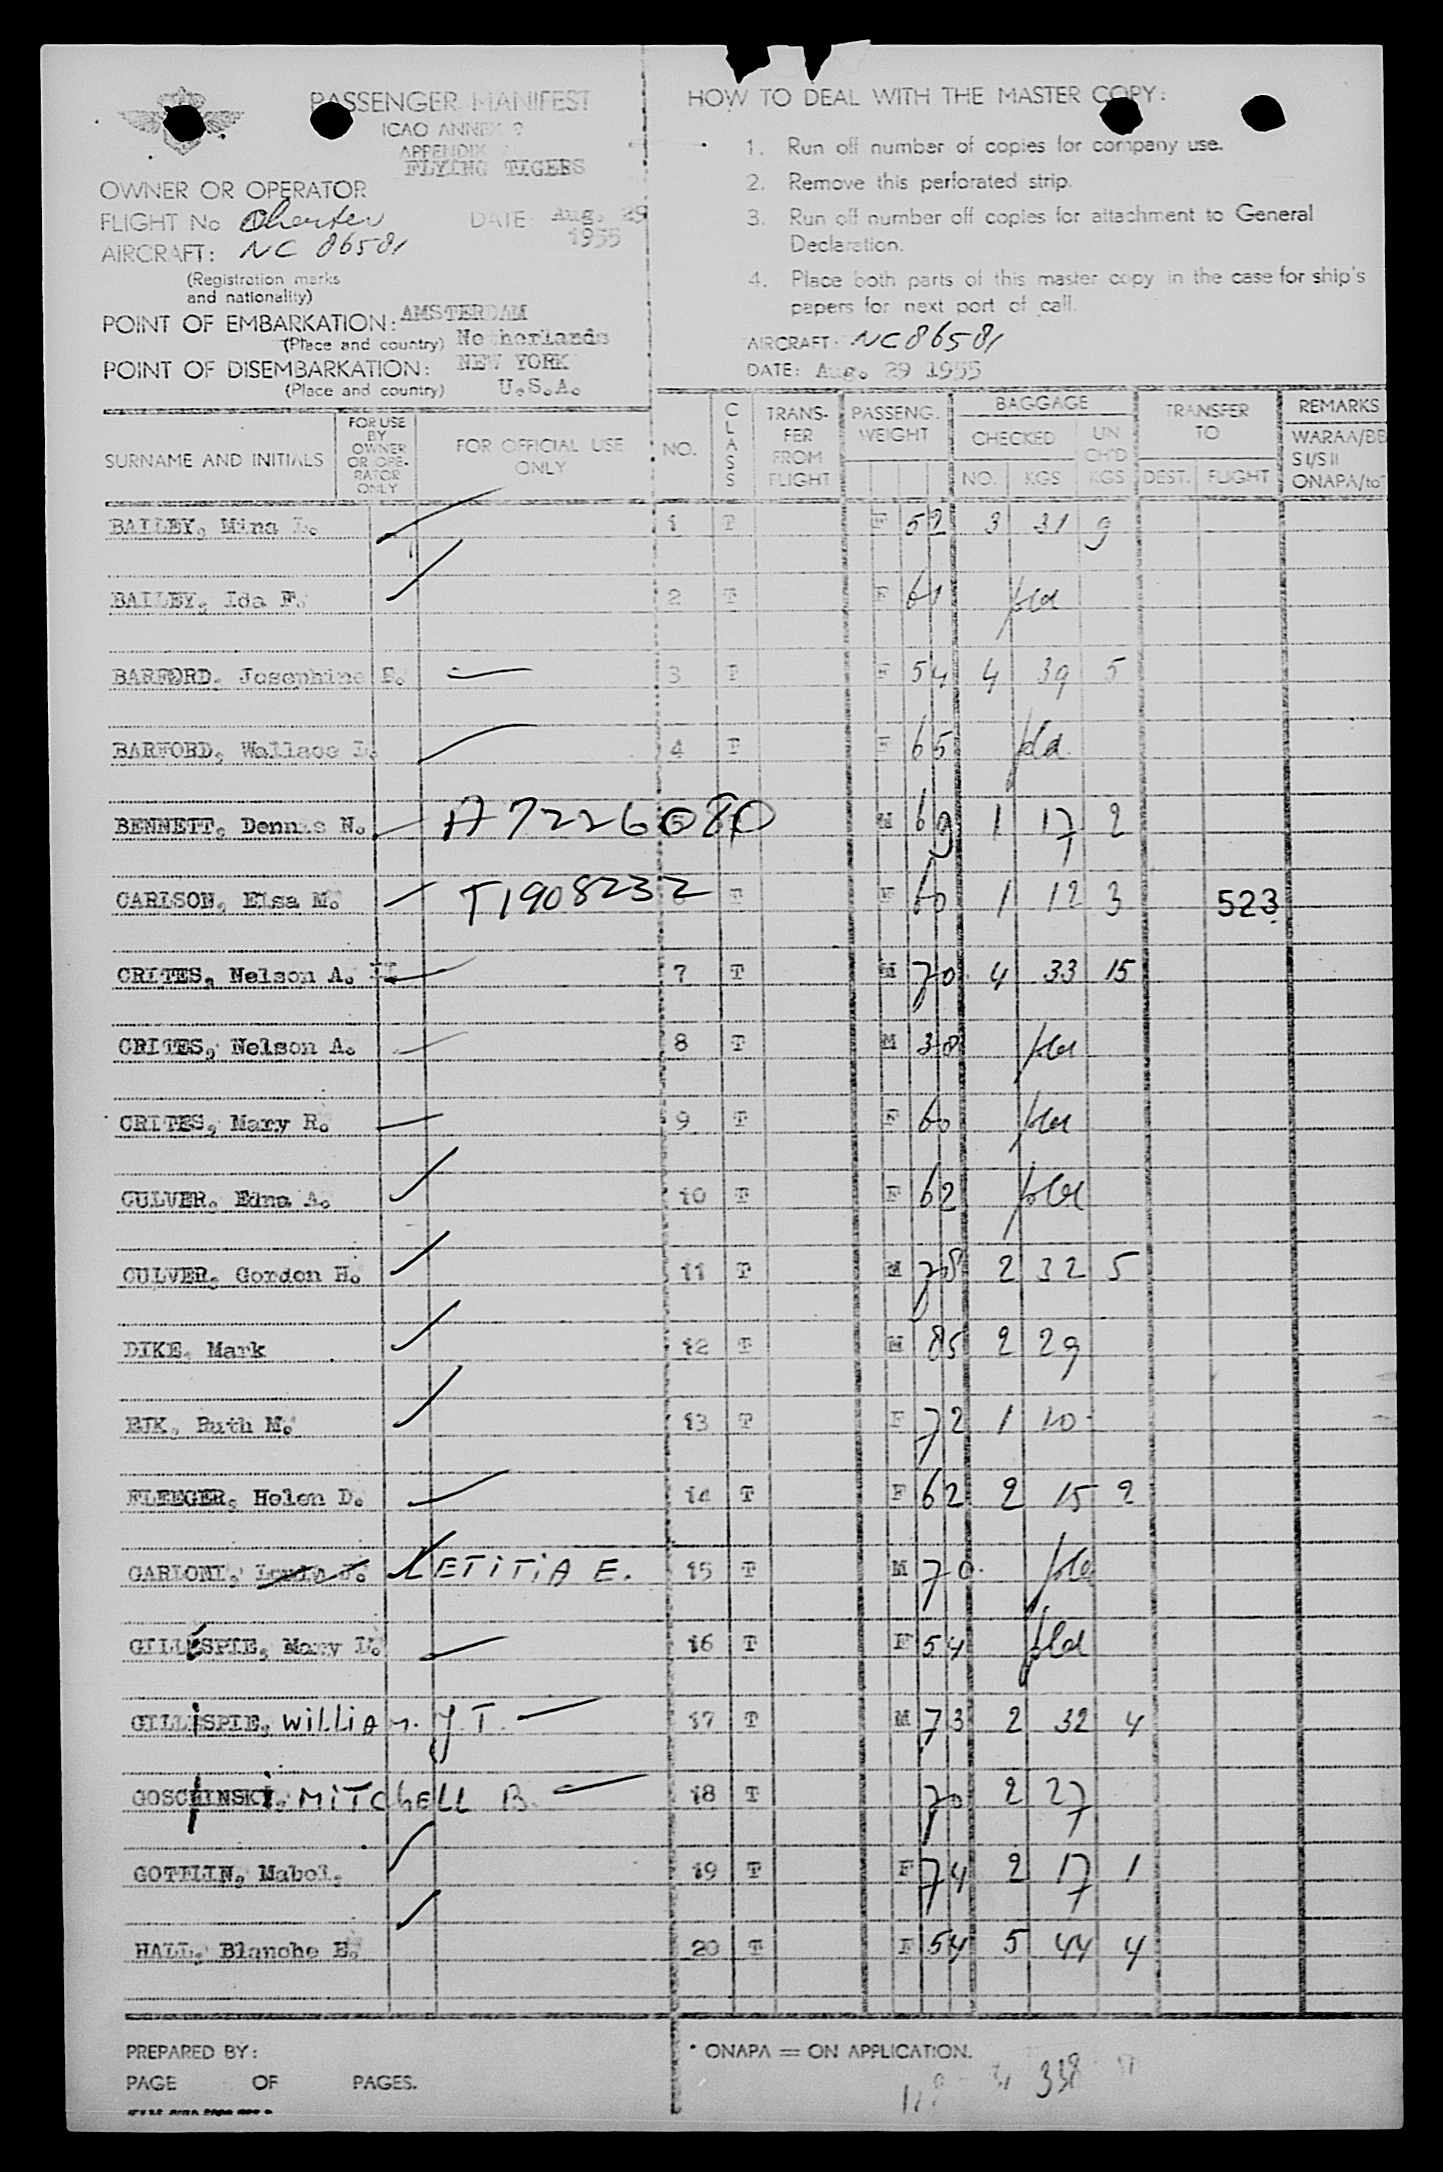 PASSENGER MANIFEST
ICAO ANNEX 9
APPENDIX
FLYING TIGERS
OWNER OR OPERATOR
FLIGHT No Charter DATE Aug. 29
1955
AIRCRAFT: NC 86581
(Registration marks
and nationality)
POINT OF EMBARKATION: AMSTERDAM
(Place and country) Netherlands
POINT OF DISEMBARKATION: NEW YORK
(Place and country) U.S.A.
HOW TO DEAL WITH THE MASTER COPY:
1. Run off number of copies for company use.
2. Remove this perforated strip.
3. Run off number off copies for attachment to General
Declaration.
4. Place both parts of this master copy in the case for ship's
papers for next port of call.
AIRCRAFT: NC86581
DATE: Aug. 29 1955
SURNAME AND INITIALS
FOR USE
BY
OWNER
OR OPE-
RATOR
ONLY
FOR OFFICIAL USE
ONLY
NO.
CLASS
TRANS-
FER
FROM
FLIGHT
PASSENG.
WEIGHT
BAGGAGE
CHECKED
NO. KGS
UN
CH'D
KGS
TRANSFER
TO
DEST. FLIGHT
REMARKS
WARAA/BB
SI/SII
ONAPA/to
BAILEY, Mina L. 1 T F 52 3 31 9
BAILEY, Ida F. 2 T F 61 pld
BARFORD, Josephine E. 3 T F 54 4 39 5
BARFORD, Wallace L. 4 T F 65 pld
BENNETT, Dennis N. A7226080 5 M 69 1 17 2
CARLSON, Elsa M. T1908232 6 T F 60 1 12 3 523
CRITES, Nelson A. II 7 T M 70 4 33 15
CRITES, Nelson A. 8 T M 38 pld
CRITES, Mary R. 9 T F 60 pld
CULVER, Edna A. 10 T F 62 pld
CULVER, Gordon H. 11 T M 78 2 32 5
DIKE, Mark 12 T M 85 2 29
EJK, Ruth M. 13 T F 72 1 10
FLEEGER, Helen D. 14 T F 62 2 15 2
GARLONI, Louis J. LETITIA E. 15 T M 70 pld
GILLESPIE, Mary L. 16 T F 54 pld
GILLISPIE, WILLIAM. J.T. 17 T M 73 2 32 4
GOSCHINSKI, MITCHELL B. 18 T 70 2 27
GOTTLIN, Mabel. 19 T F 74 2 17 1
HALL, Blanche E. 20 T F 54 5 44 4
PREPARED BY:
PAGE OF PAGES.
* ONAPA = ON APPLICATION.
338